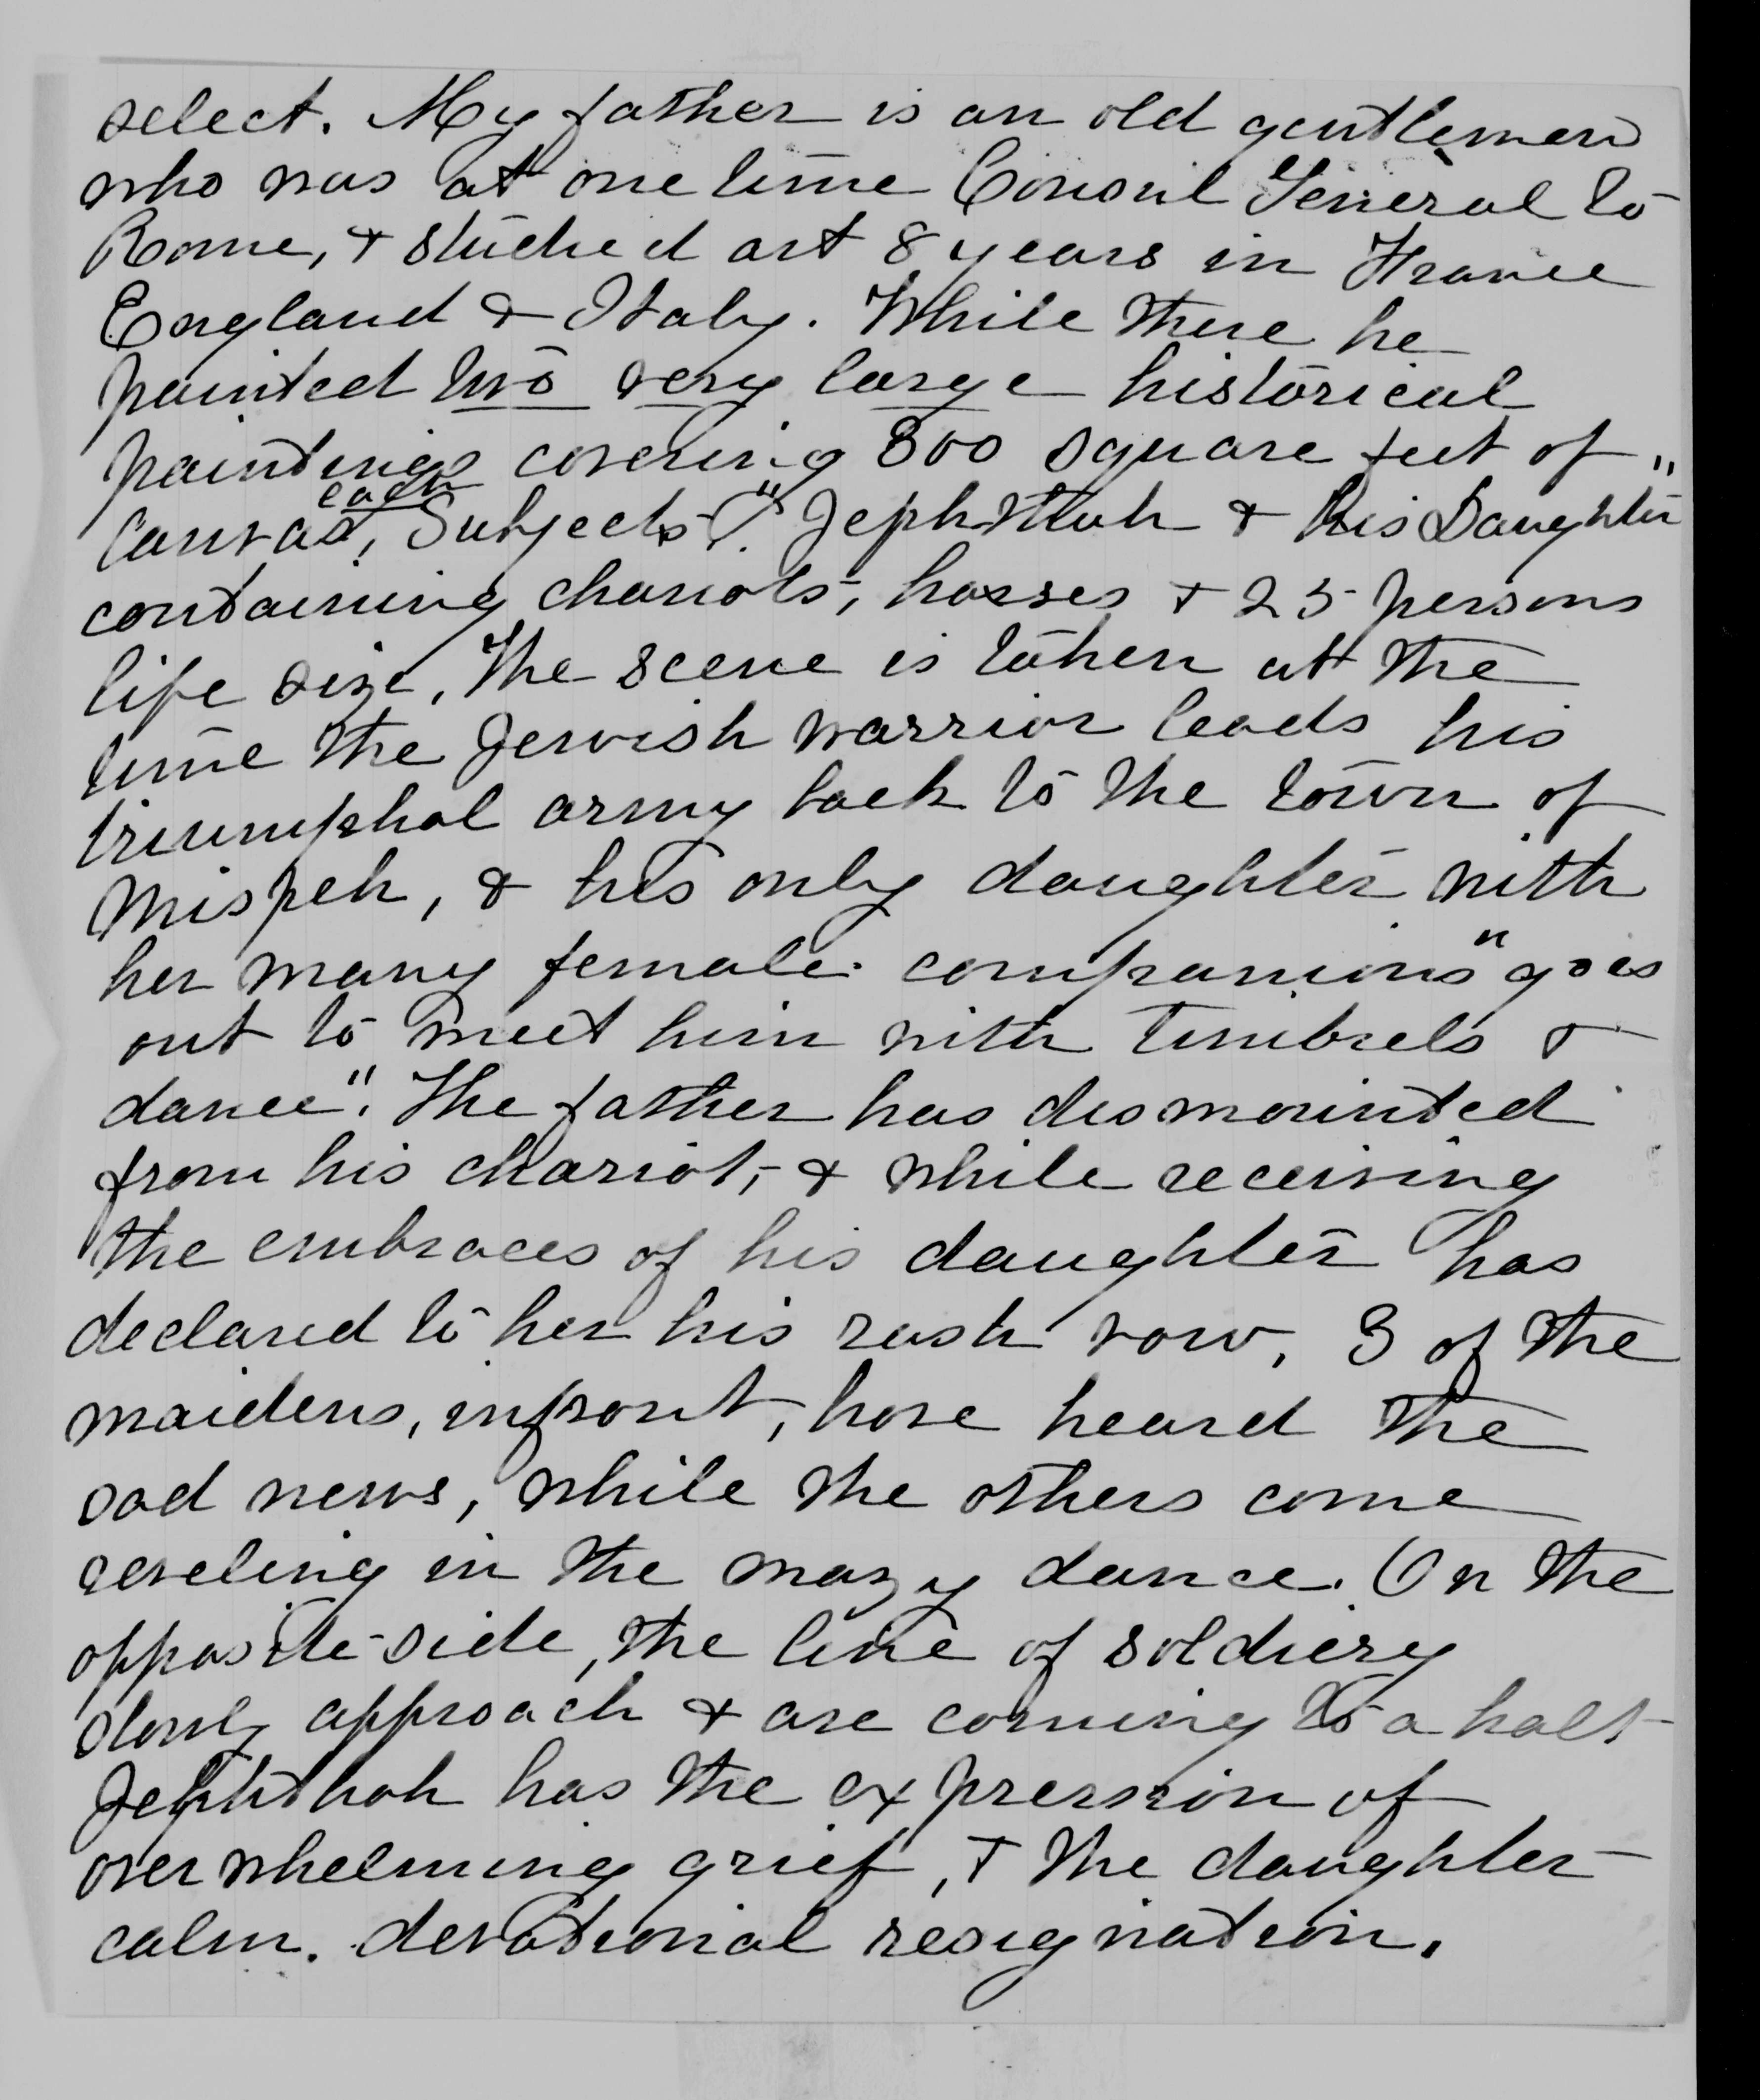 select. My father is an old gentlemen
who was at one time Consul General to
Rome, & studied art 8 years in France
England & Italy. While there he
painted two very large historical
paintings covering 800 square feet of
each
canvas, Subjects "Jephthah & his Daughter"
containing chariots, horses & 25 persons
life size. The scene is taken at the
time the Jewish warrior leads his
triumphal army back to the town of
Mispeh, & his only daughter with
her many female companions "goes
out to meet him with timbrels &
dance". The father has dismounted
from his chariot, & while receiving
the embraces of his daughter has
declared to her his rash vow. 3 of the
maidens, infront, have heard the
sad news, while the others come
reveling in the mazy dance. On the
opposite side, the line of soldiery
slowly approach & are coming to a halt
Jephthah has the expression of
overwhelming grief, & the daughter
calm. devotional resignation.